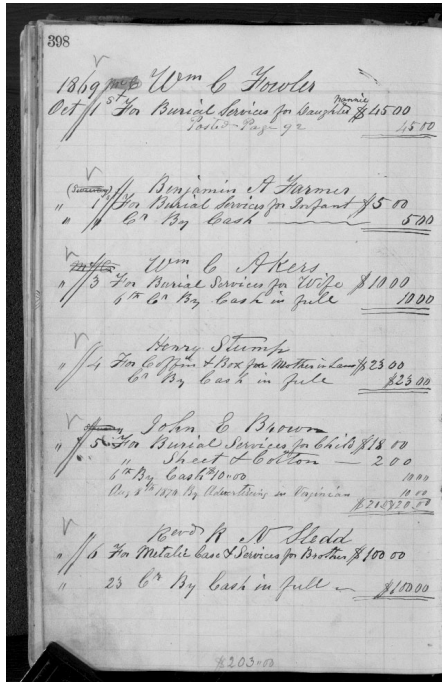 398
1869 Wm C Fowler
Oct 1st For Burial Services for Daughter Nannie $45 00
Posted - Page 92 45 00
Benjamin A Farmer
" 1 For Burial Services for Infant $5 00
" " Cr By Cash 5 00
Wm C Akers
" 3 For Burial Services for Wife $10 00
6th Cr By Cash in full 10 00
Henry Stump
" 4 For Coffin & Box for Mother in Law $23 00
Cr By Cash in full $23 00
John E Brown
" 5 For Burial Services for Child $18 00
" Sheet & Cotton — 2 00
6th By Cash $10=00 10 00
Aug 8th 1870 By Advertising in Virginian 10 00
$20.00
Revd R N Sledd
" 6 For Metalic Case & Services for Brother $100 00
" 23 Cr By Cash in full $100 00
$203=00